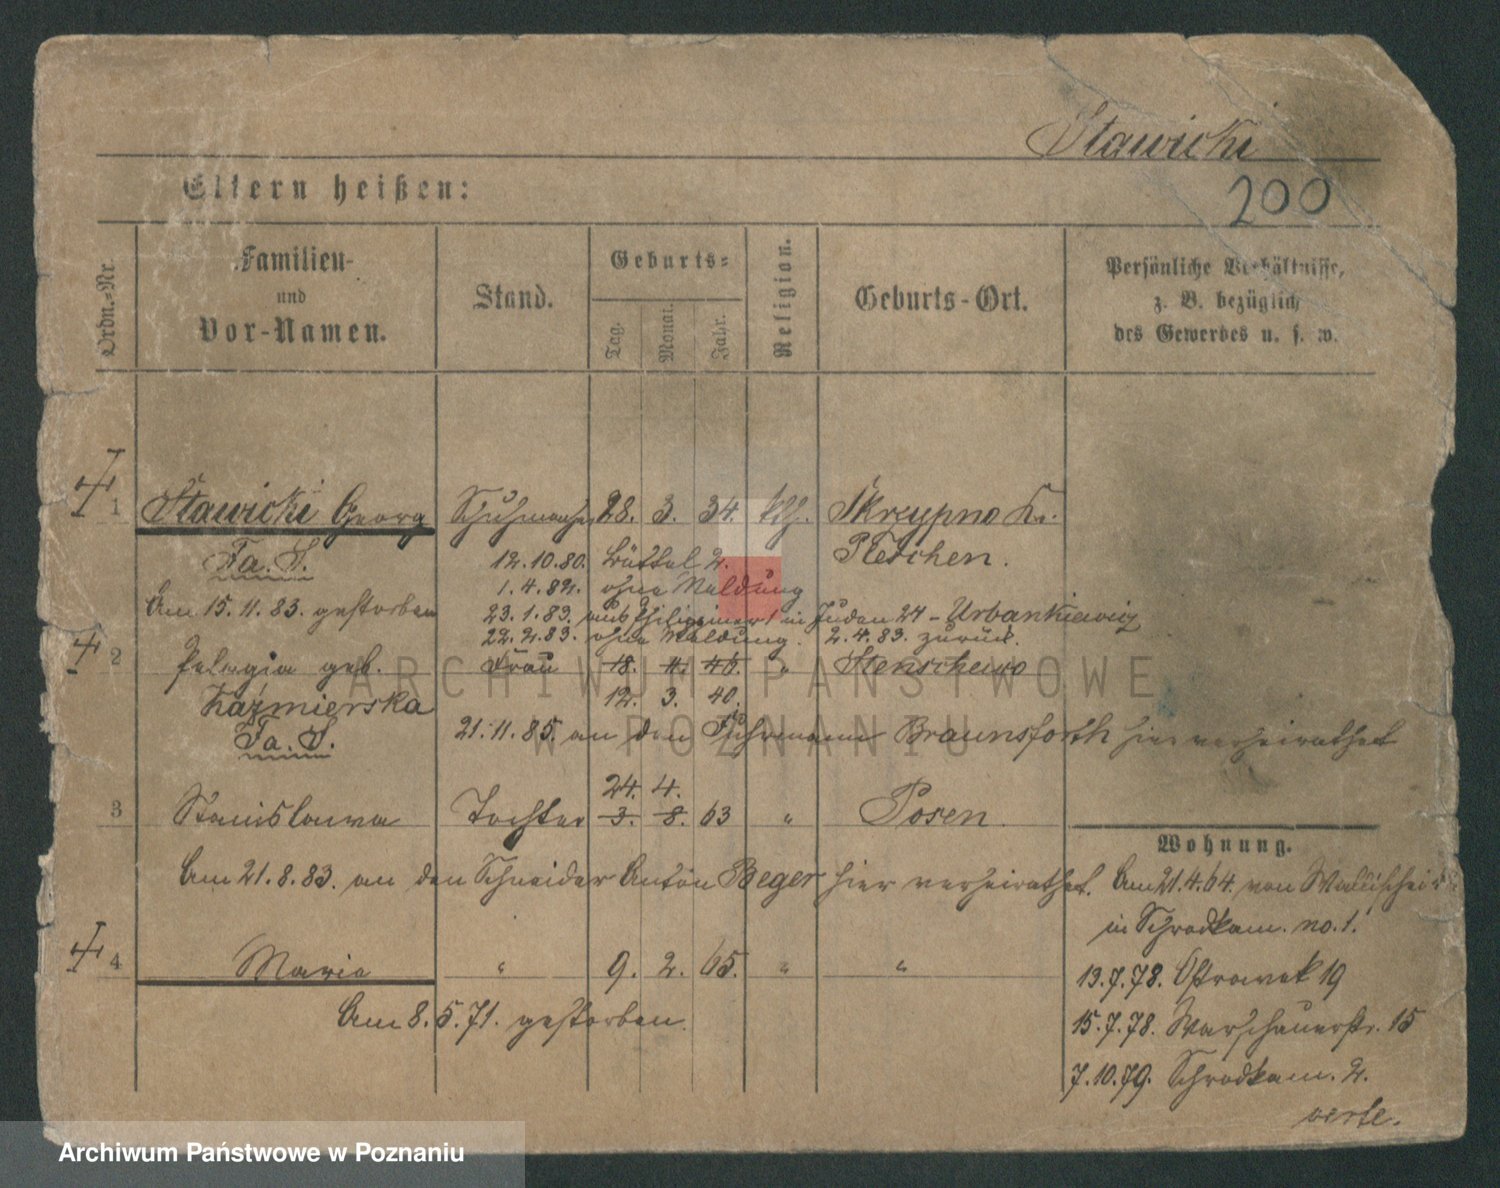 Stawicki
200
Eltern heißen:
Ordn.-Nr.
Familien-
und
Vor-Namen.
Stand.
Geburts-
Tag.
Monat.
Jahr.
Religion.
Geburts-Ort.
Persönliche Verhältnisse,
z. B. bezüglich
des Gewerbes u. s. w.
1 Stawicki Georg Schuhmacher 28. 3. 34. kth. Skrzypno Kr.
Fa. S. 12.10.80. Büttel 2. Pleschen.
1.4.82. ohne Meldung
Am 15.11.83. gestorben 23.1.83. aus in Juden 24 - Urbankiewicz
22.2.83. ohne Meldung. 2.4.83. zurück.
2 Pelagia geb. Frau 18. 11. 46. " Stenschewo
Kaźmierska 12. 3. 40.
Fa. S. 21.11.85. an den Fuhrmann Braunsforth hier verheirathet
24. 4.
3 Stanislawa Tochter 3. 8. 63 " Posen.
Wohnung.
Am 21.8.83. an den Schneider Anton Beger hier verheirathet. Am 21.4.64. von Wallischei
in Schrodkam. no. 1.
4 Maria " 9. 2. 65. " "
13.7.78. Ostrowek 19
Am 8.5.71. gestorben. 15.7.78. Warschauerstr. 15
7.10.79. Schrodkam. 2.
verte.
ARCHIWUM PAŃSTWOWE
W POZNANIU
Archiwum Państwowe w Poznaniu